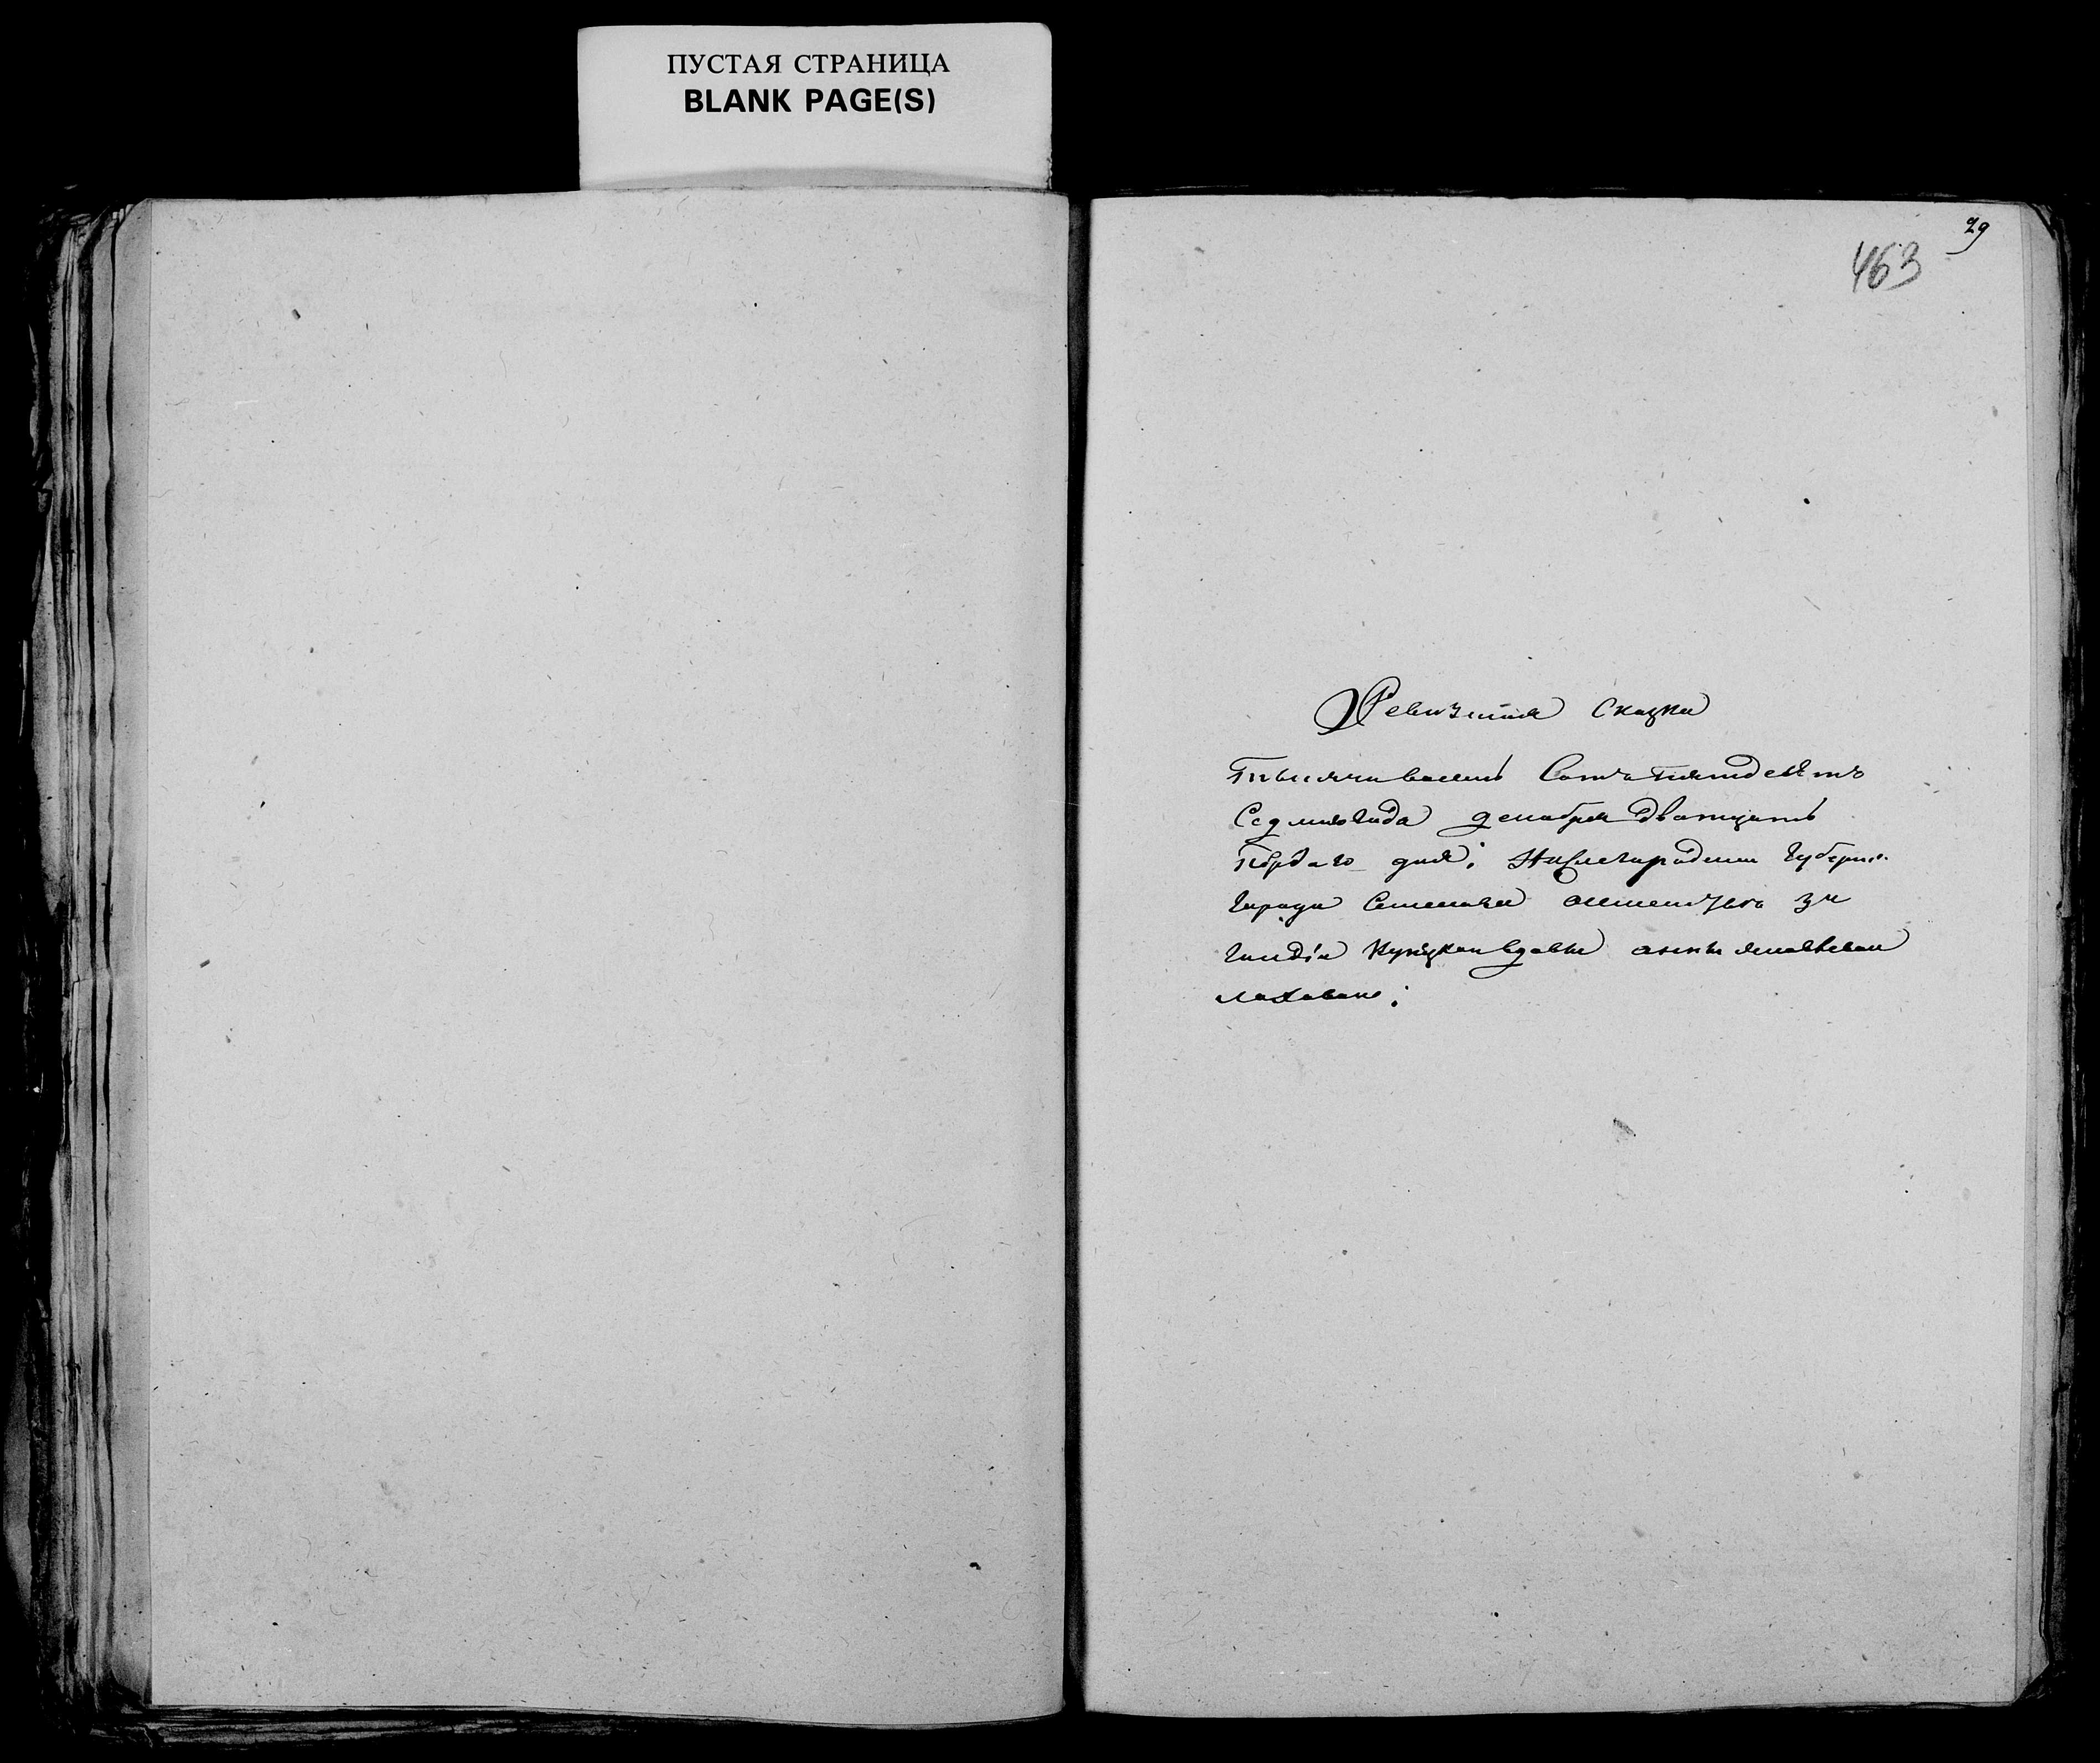 ПУСТАЯ СТРАНИЦА
BLANK PAGE(S)
29
463
Ревизская Сказка
Тысячи восемь Сотъ пятдесятъ
Седмаго года декабря дватцать
перваго дня; Нижегородской губерни
города Семенова 3й
гилдіи Купецкой вдовы